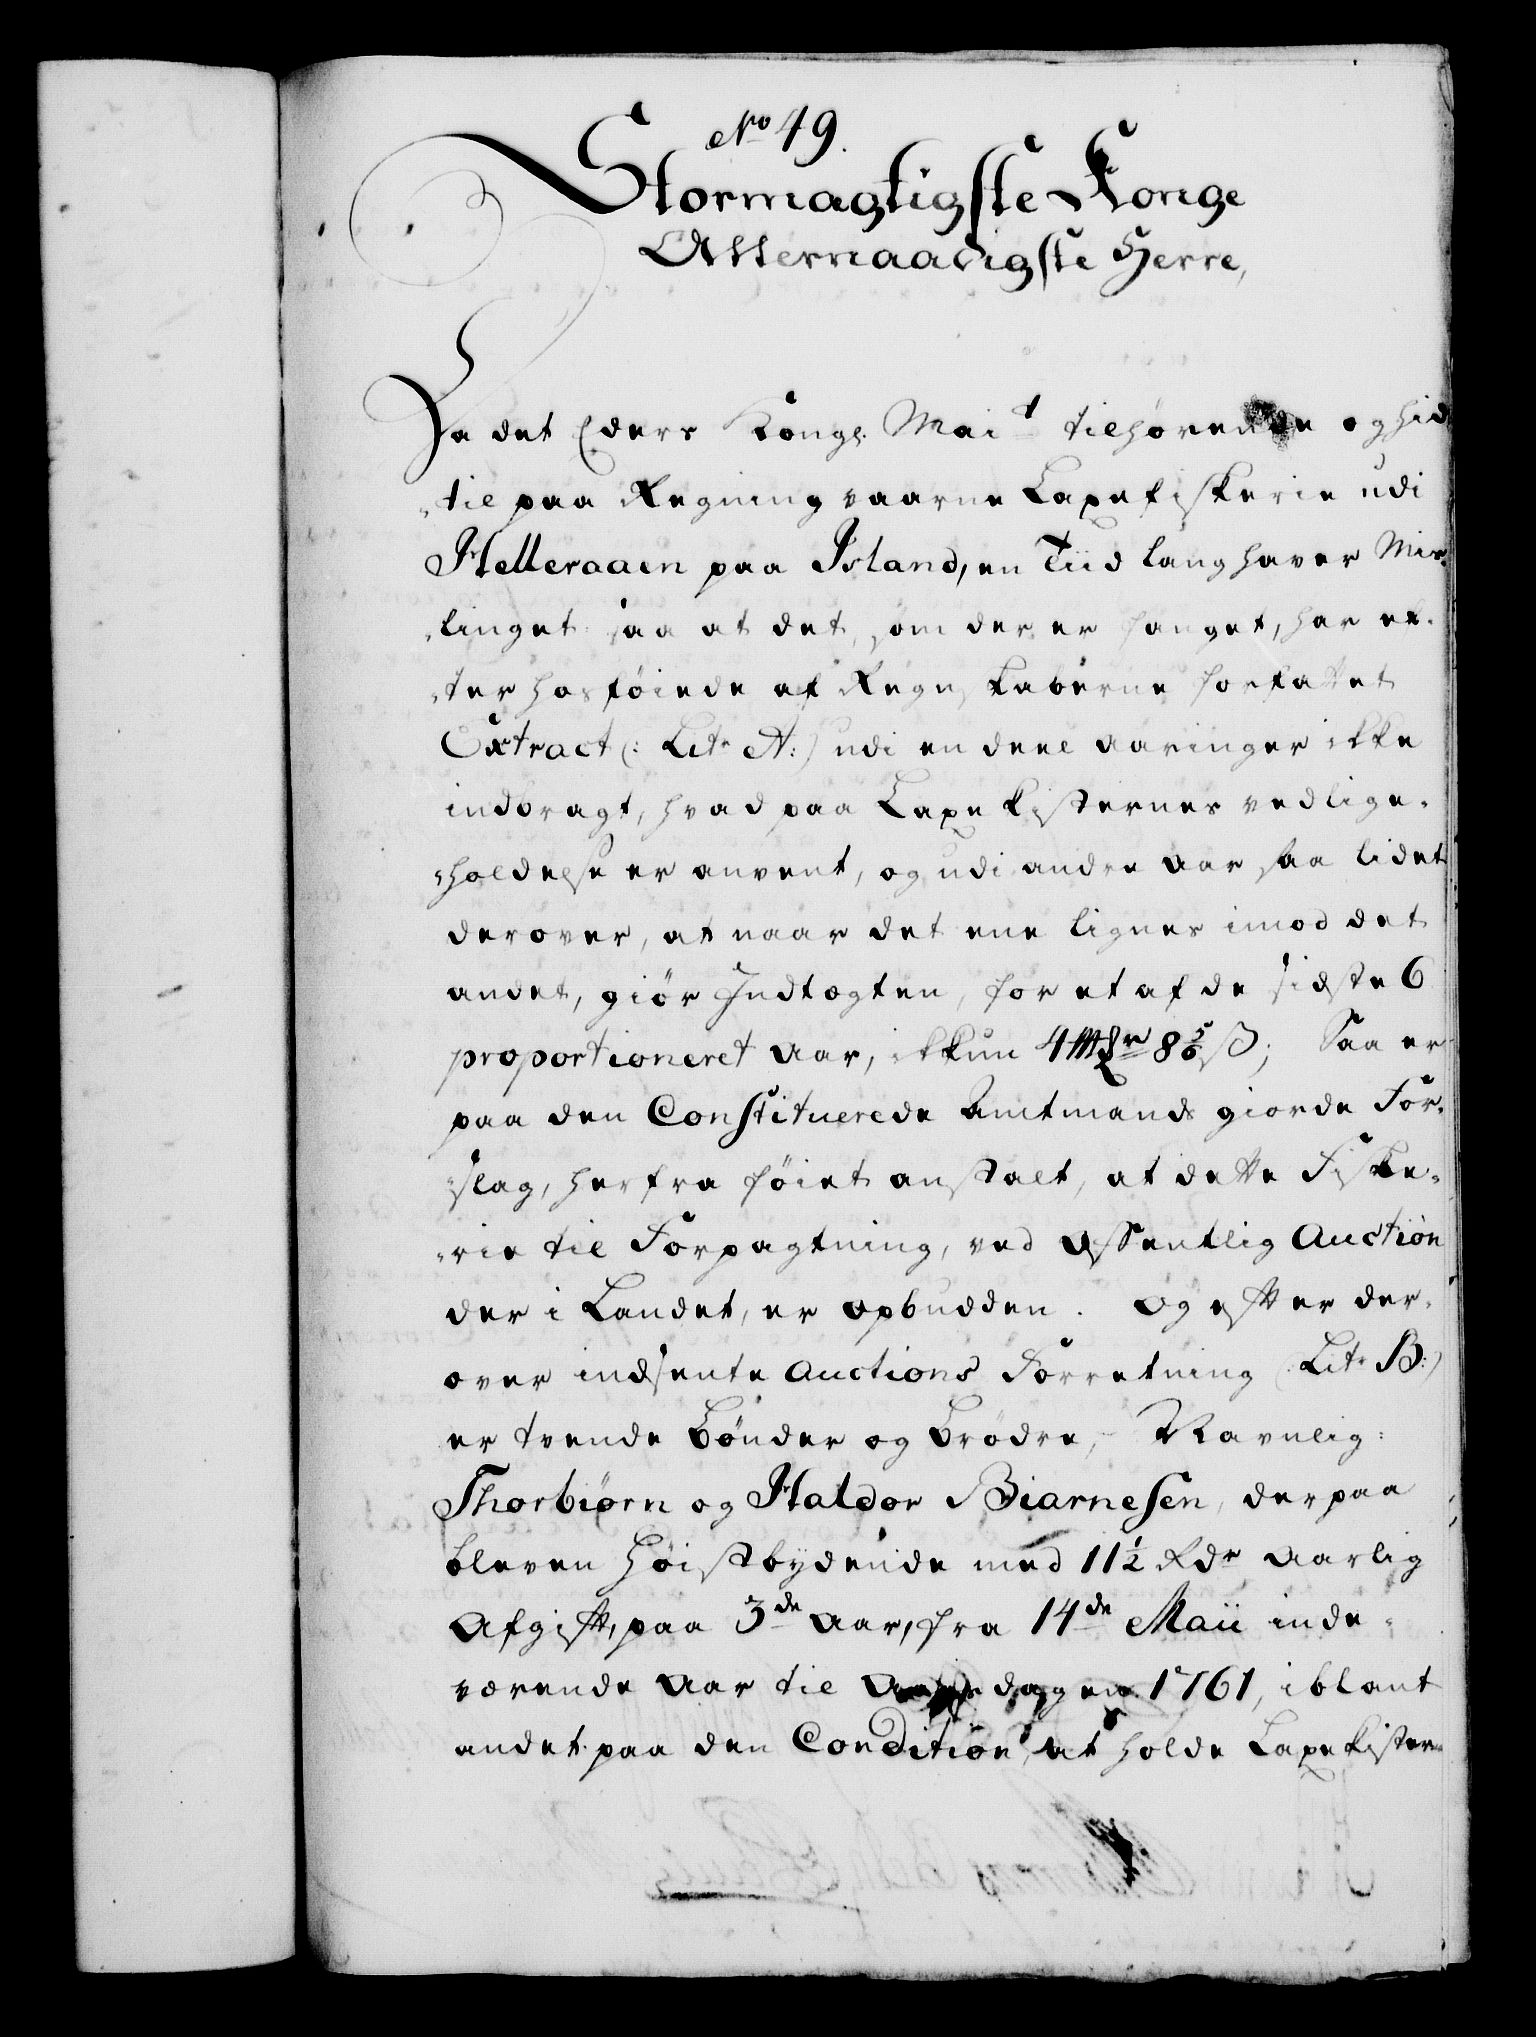 No 49.
Stormægtigste Konge
Allernaadigste Herre,
Da det Eders Kongl. Mait tilhørende og hid
til paa Regning vaarne Laxefiskerie udi
Helleraaen paa Island, en Tiid lang haver Mis¬
linget saa at det, som der er fanget, har ef¬
ter hosføiede af Regnskaberne forfattet
Extract (: Litr A:) udi en deel aaringer ikke
indbragt, hvad paa Laxekisternes vedlige¬
holdelse er anvent, og udi andre aar saa lidet
derover, at naar det ene lignes imod det
andet, giør Indtægten, for et af de sidste 6
proportioneret aar, ikkun 4 Mk 8 5/6 ß; Saa er
paa den Constituerede Amtmands giorde For¬
slag, herfra føiet anstalt, at dette Fiske¬
rie til Forpagtning, ved offentlig Auction
der i Landet, er opbudden. Og efter der¬
over indsente Auctions Forretning (Litr B:)
er tvende Bønder og Brødre, Navnlig:
Thorbiørn og Haldor Biarnesen, derpaa
bleven Høistbydende med 11 1/2 Rdr aarlig
Afgift, paa 3de Aar, fra 14de Maii inde¬
værende Aar til dagen 1761, iblant
andet paa den Condition, at holde Laxekister